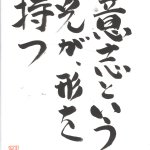 意志という
光が、形を
持つ